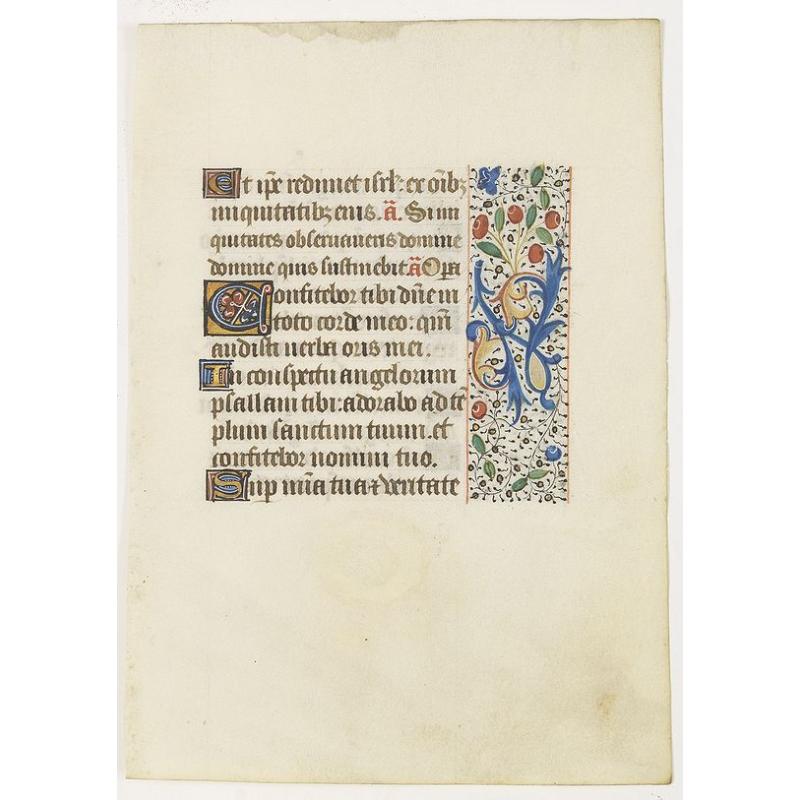 Et ip̄e redimet isrl': ex oīb3
iniquitatib3 eius. ā. Si ini
quitates obseruaueris domine
domine quis sustinebit ā Opera
Confitebor tibi dn̄e in
toto corde meo: qm̄
audisti uerba oris mei.
In conspectu angelorum
psallam tibi: adorabo ad tē
plum sanctum tuum. et
confitebor nomini tuo.
Sup mīa tua ⁊ veritate